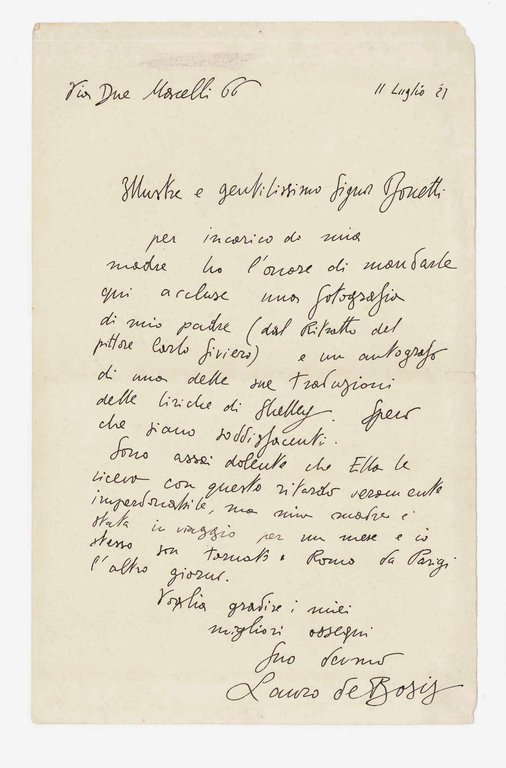 Via Due Macelli 66
11 Luglio '27
Illustre e gentilissimo Signor Bonetti
per incarico di mia
madre ho l'onore di mandarle
qui accluse una fotografia
di mio padre (dal Ritratto del
pittore Carlo Siviero) e un autografo
di una delle sue traduzioni
delle liriche di Shelley. Spero
che siano soddisfacenti.
Sono assai dolente che Ella le
riceva con questo ritardo veramente
imperdonabile, ma mia madre è
stata in viaggio per un mese e io
stesso son tornato a Roma da Parigi
l'altro giorno.
Voglia gradire i miei
migliori ossequi
Suo devmo
Lauro de Bosis